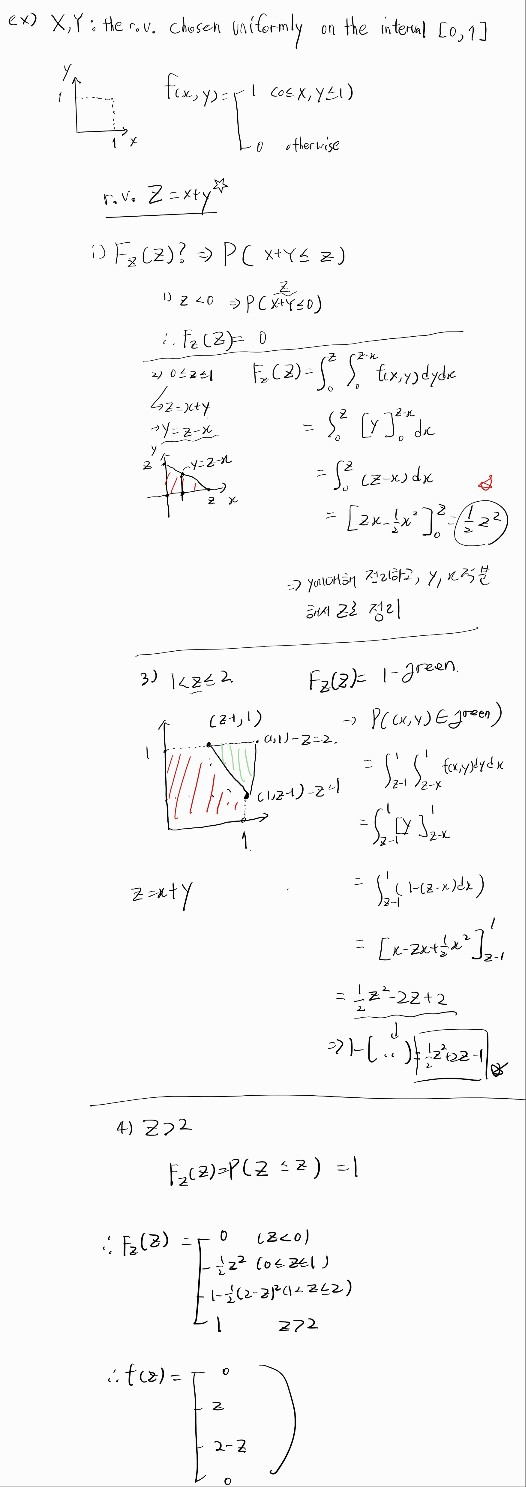 ex) X,Y : the r.v. chosen uniformly on the interval [0,1]
y
1
1 x
f(x,y) = 1 (0≤x,y≤1)
0 otherwise
r.v. Z = x+y ☆
i) F_Z(Z)? ⇒ P( X+Y ≤ z)
1) z<0 ⇒ P(X+Y≤0)
Z
∴ F_Z(Z) = 0
2) 0≤z≤1 F_Z(Z) = ∫_0^z ∫_0^{z-x} f(x,y) dydx
↳ z=x+y
→ y=z-x = ∫_0^z [y]_0^{z-x} dx
y
z y=z-x
z x
= ∫_0^z (z-x) dx
= [zx-½x²]_0^z = ½z²
⇒ y에 대해 정리하고, y, x 적분
해서 z로 정리
3) 1<z≤2 F_Z(Z) = 1-green.
(z-1, 1) → P((x,y)∈green)
1 (1,1)-z=2.
= ∫_{z-1}^1 ∫_{z-x}^1 f(x,y)dydx
(1,z-1)-z=1
1
= ∫_{z-1}^1 [y]_{z-x}^1
z=x+y = ∫_{z-1}^1 ( 1-(z-x)dx)
= [x-zx+½x²]_{z-1}^1
= ½z²-2z+2
⇒ 1-( .. ) = -½z²+2z-1 ☆
4) Z>2
F_Z(z)=P(Z ≤ z) = 1
∴ F_Z(Z) = 0 (z<0)
½z² (0≤z≤1)
1-½(2-z)² (1<z≤2)
1 z>2
∴ f(z) = 0
z
2-z
0